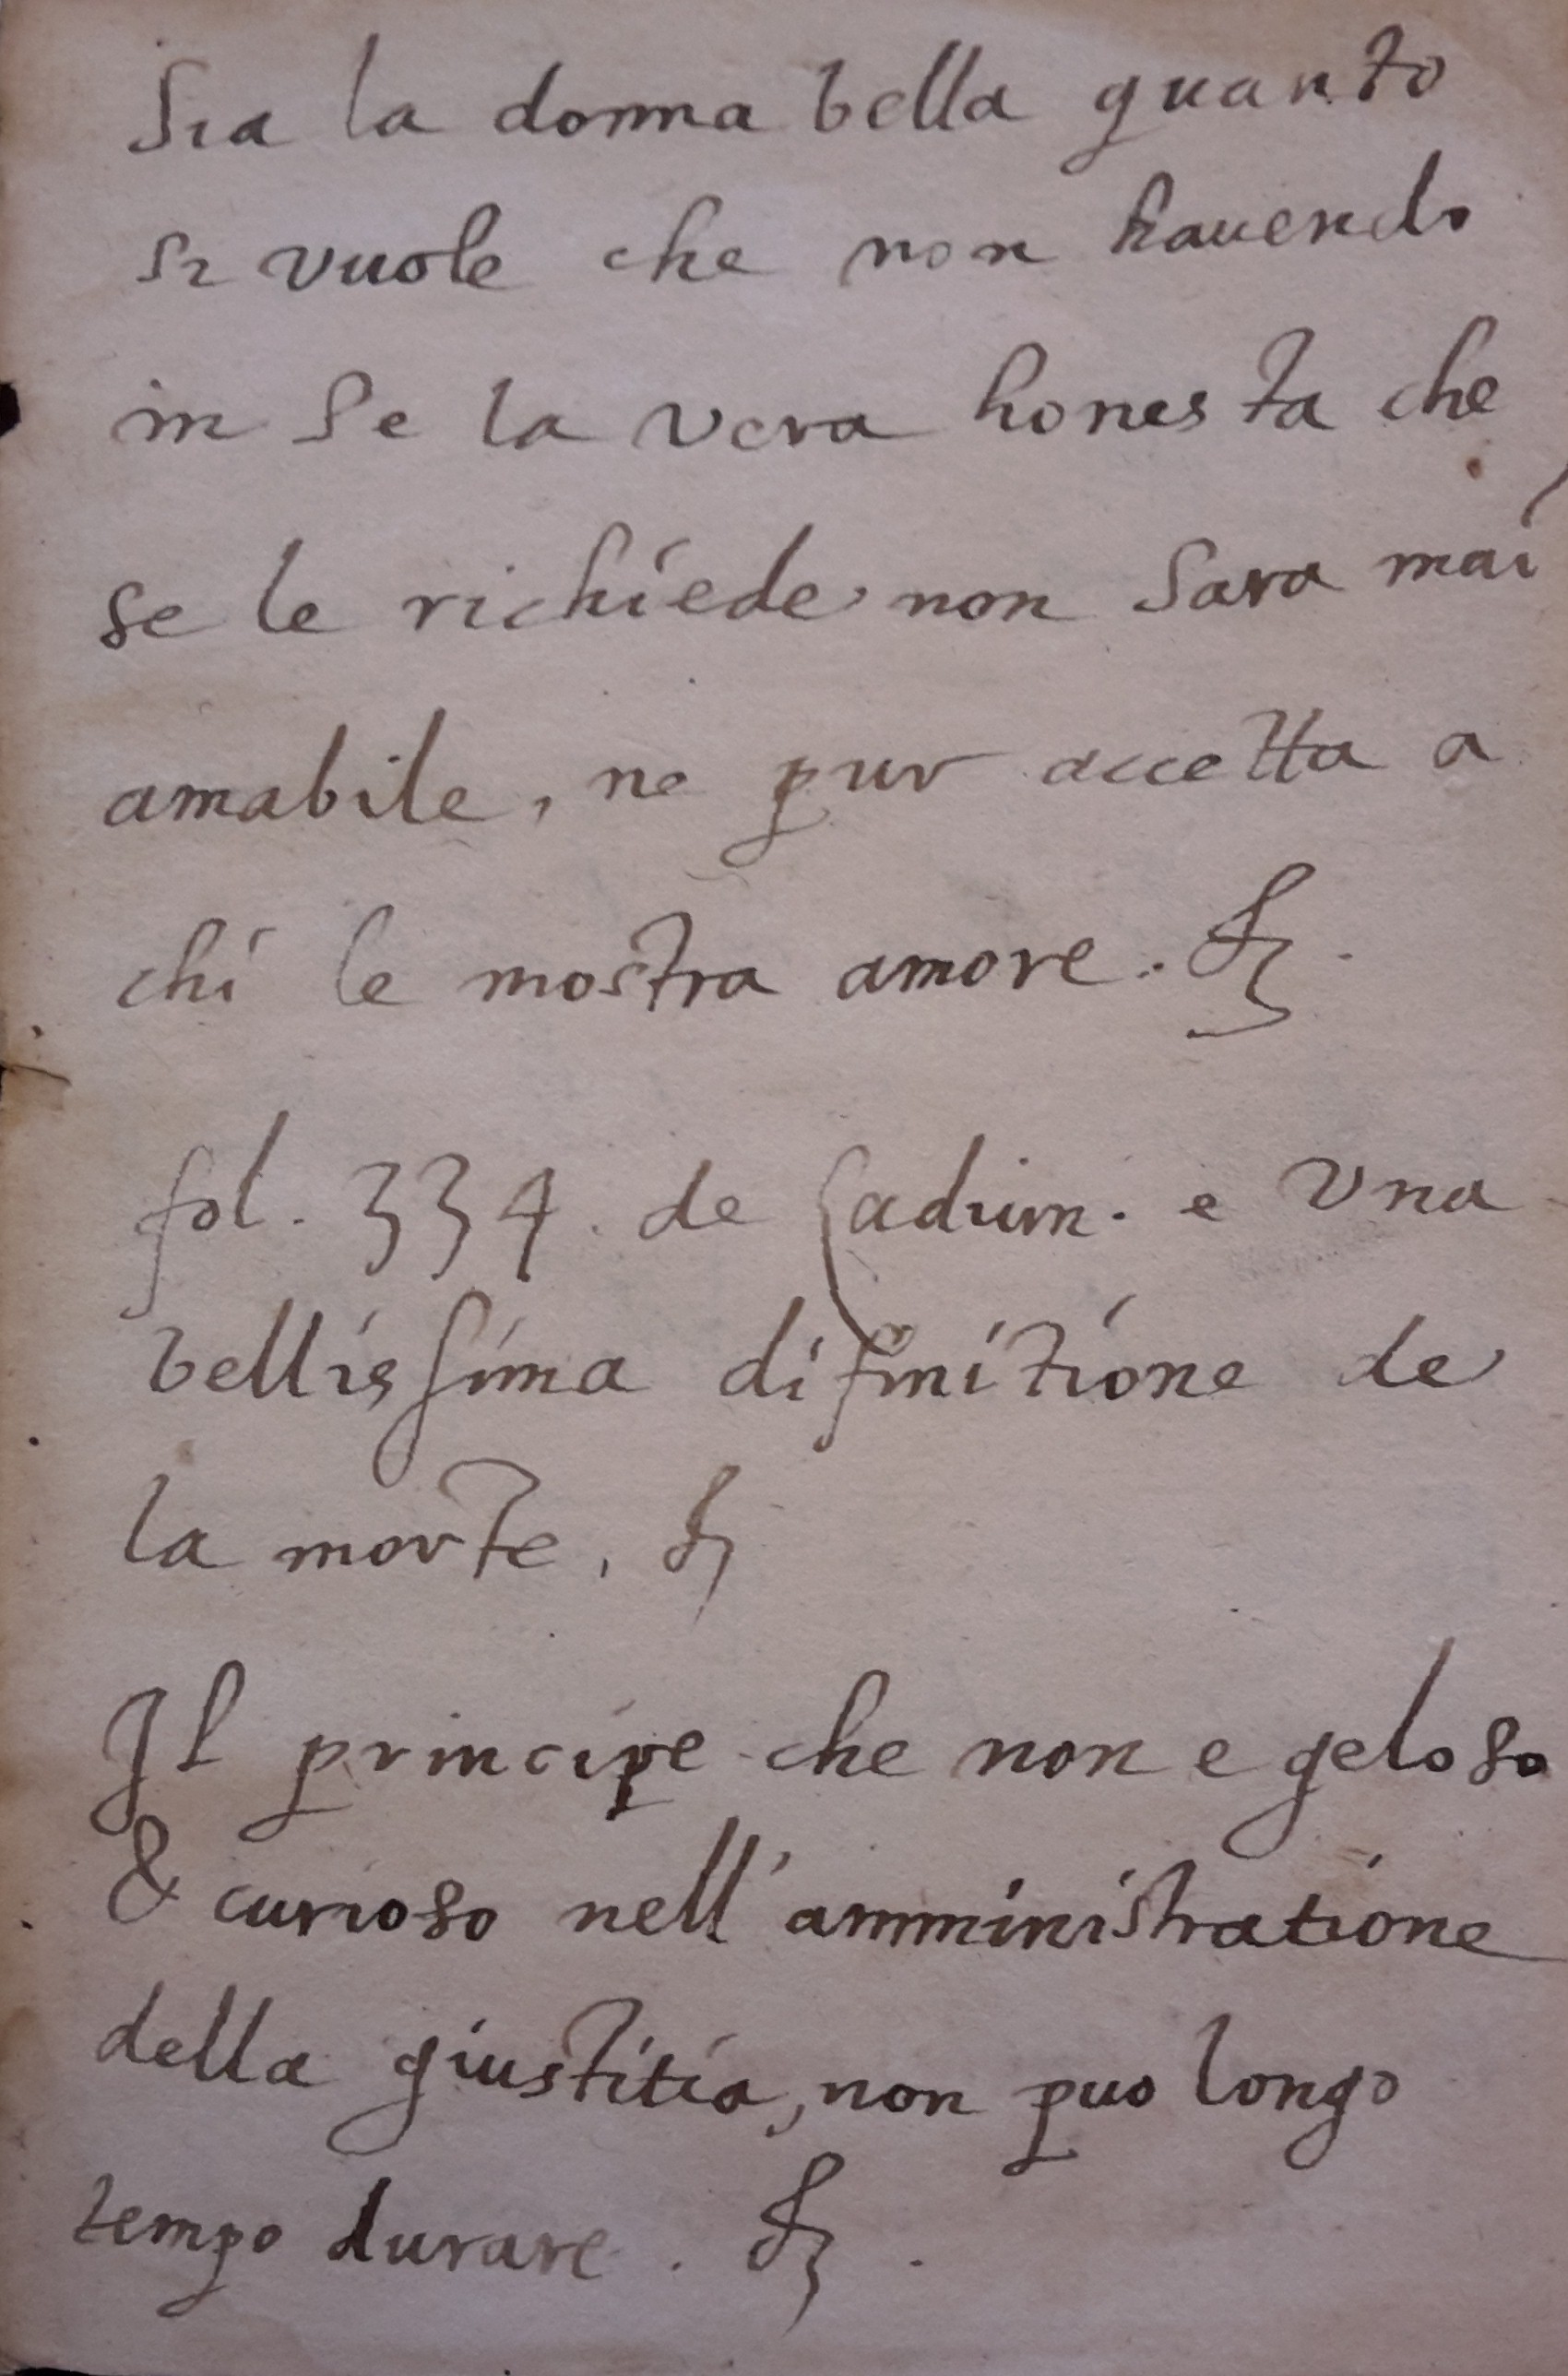 Sia la donna bella quanto
si vuole che non havendo
in se la vera honesta che
se le richiede non sara mai
amabile, ne pur accetta a
chi le mostra amore.
fol. 334. de e una
bellissima difinitione de
la morte,
Il principe che non e geloso
& curioso nell'amministratione
della giustitia, non puo longo
tempo durare.